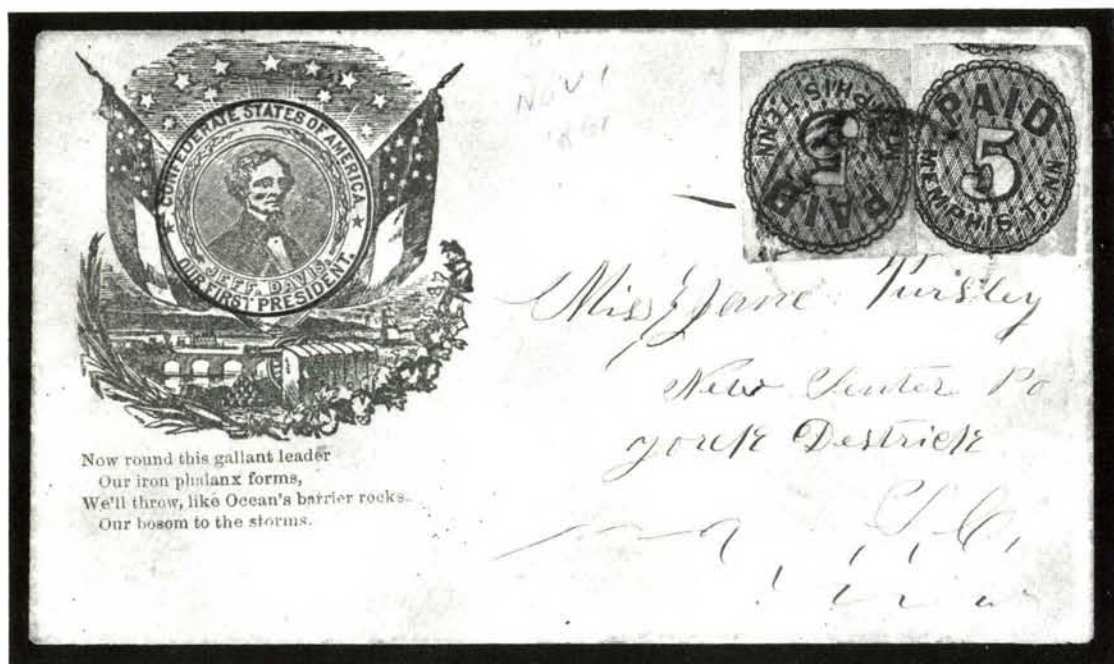 CONFEDERATE STATES OF AMERICA.
JEFF. DAVIS.
OUR FIRST PRESIDENT.
Now round this gallant leader
Our iron phalanx forms,
We'll throw, like Ocean's barrier rocks.
Our bosom to the storms.
Nov 1
1861
PAID
5
MEMPHIS TENN
PAID
5
MEMPHIS, TENN
Miss Jane Pursley
New Senter Po
yorck Destrick
S.C.